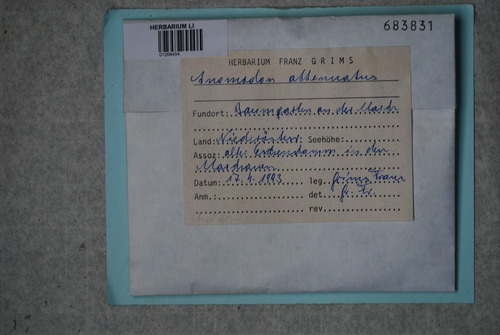 HERBARIUM LI
683831
HERBARIUM FRANZ GRIMS
Anomodon attenuatus
Fundort: Baumgarten an der March
Land: Niederösterr. Seehöhe:
Assoz: alter Erdendamm in den
Marchauen
Datum: 17.4.1993 leg. Grims Franz
Anm.: det. Gr. Fr.
rev.